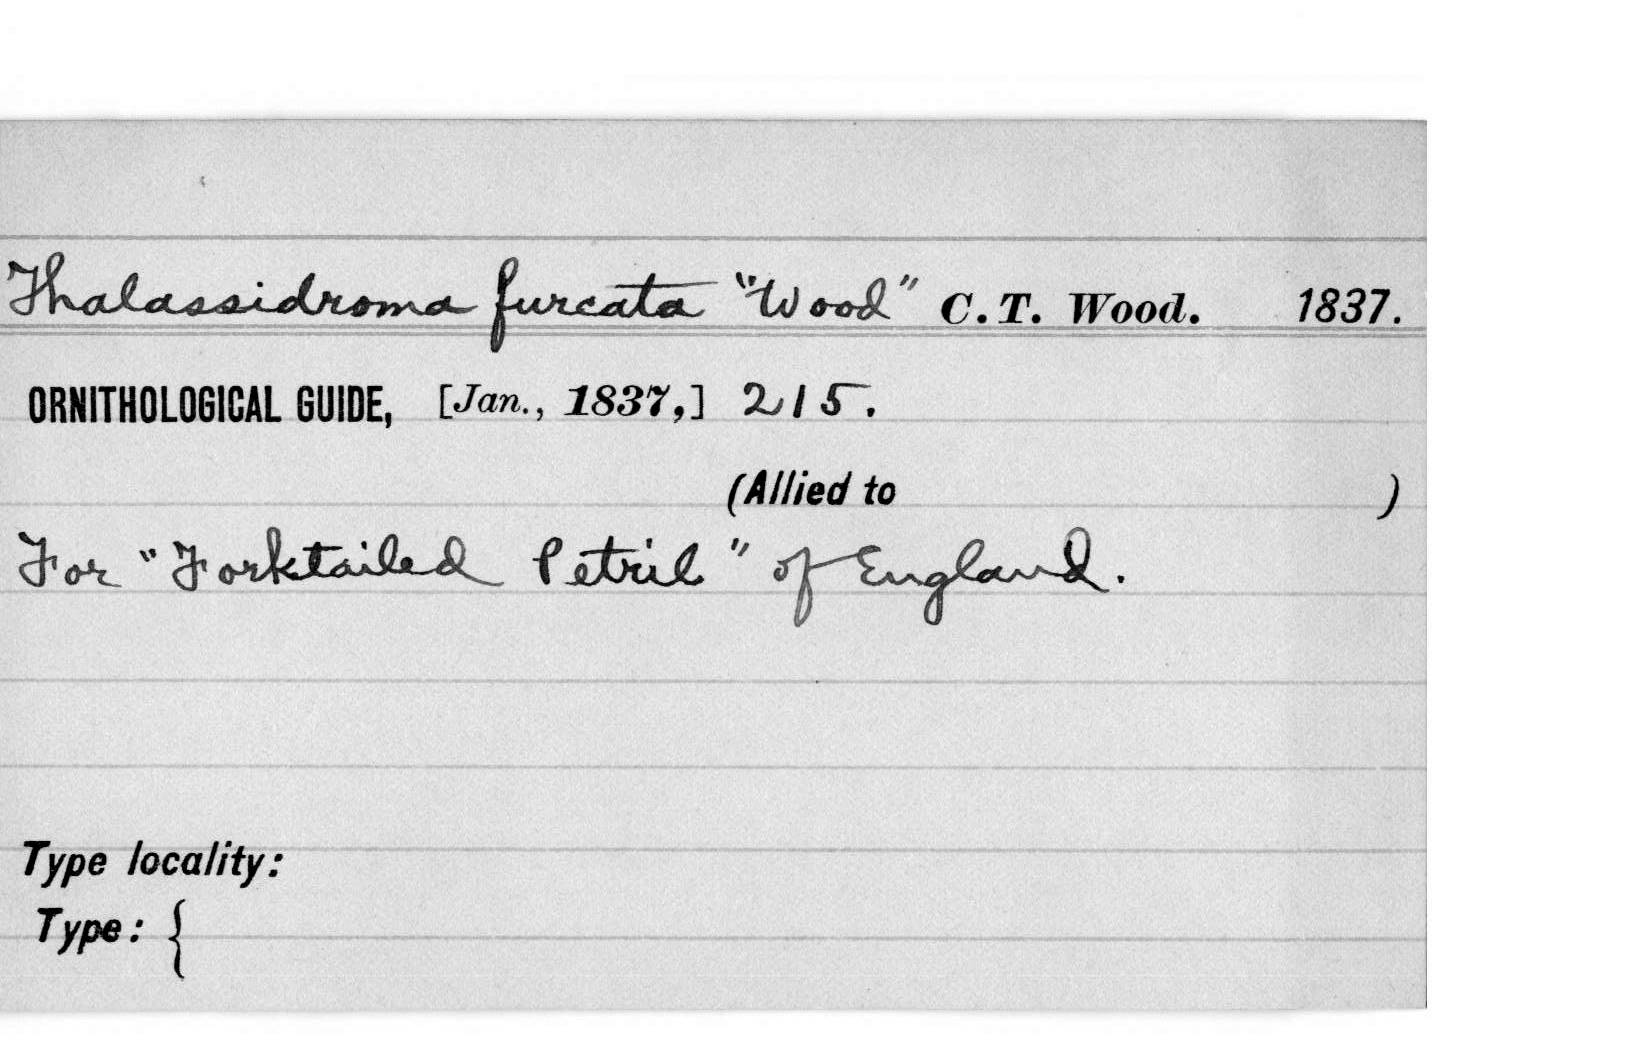 Thalassidroma furcata "Wood" C. T. Wood. 1837.
ORNITHOLOGICAL GUIDE, [Jan., 1837,] 215.
(Allied to )
For "Forktailed Petril" of England.
Type locality:
Type: {